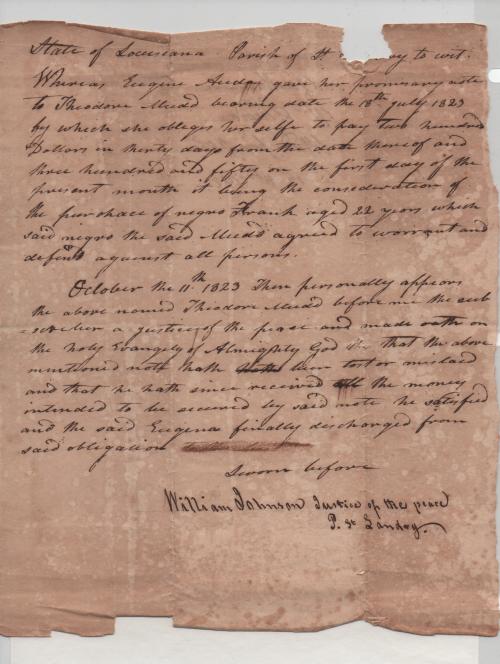 State of Louisiana Parish of St. to wit.
Whereas Eugene gave her promisary note
to Theodore Mudd bearing date the 18th July 1823
by which she obleges her selfe to pay two hundred
Dollars in thirty days from the date thereof and
three hundred and fifty on the first day of the
present month it being the consideration of
the purchace of negro Frank aged 22 years which
said negro the said Mudd agreed to warrant and
defend against all persons.
October the 11th 1823 Then personally appears
the above named Theodore Mudd before me the sub
=scriber a justice of the peace and made oath on
the holy Evangely of Almighty God that the above
mentioned note hath been lost or mislaid
and that he hath since received all the money
intended to be secured by said note he satisfied
and the said Eugena finally discharged from
said obligation
Sworn before
William Johnson Justice of the peace
P. St Landry.